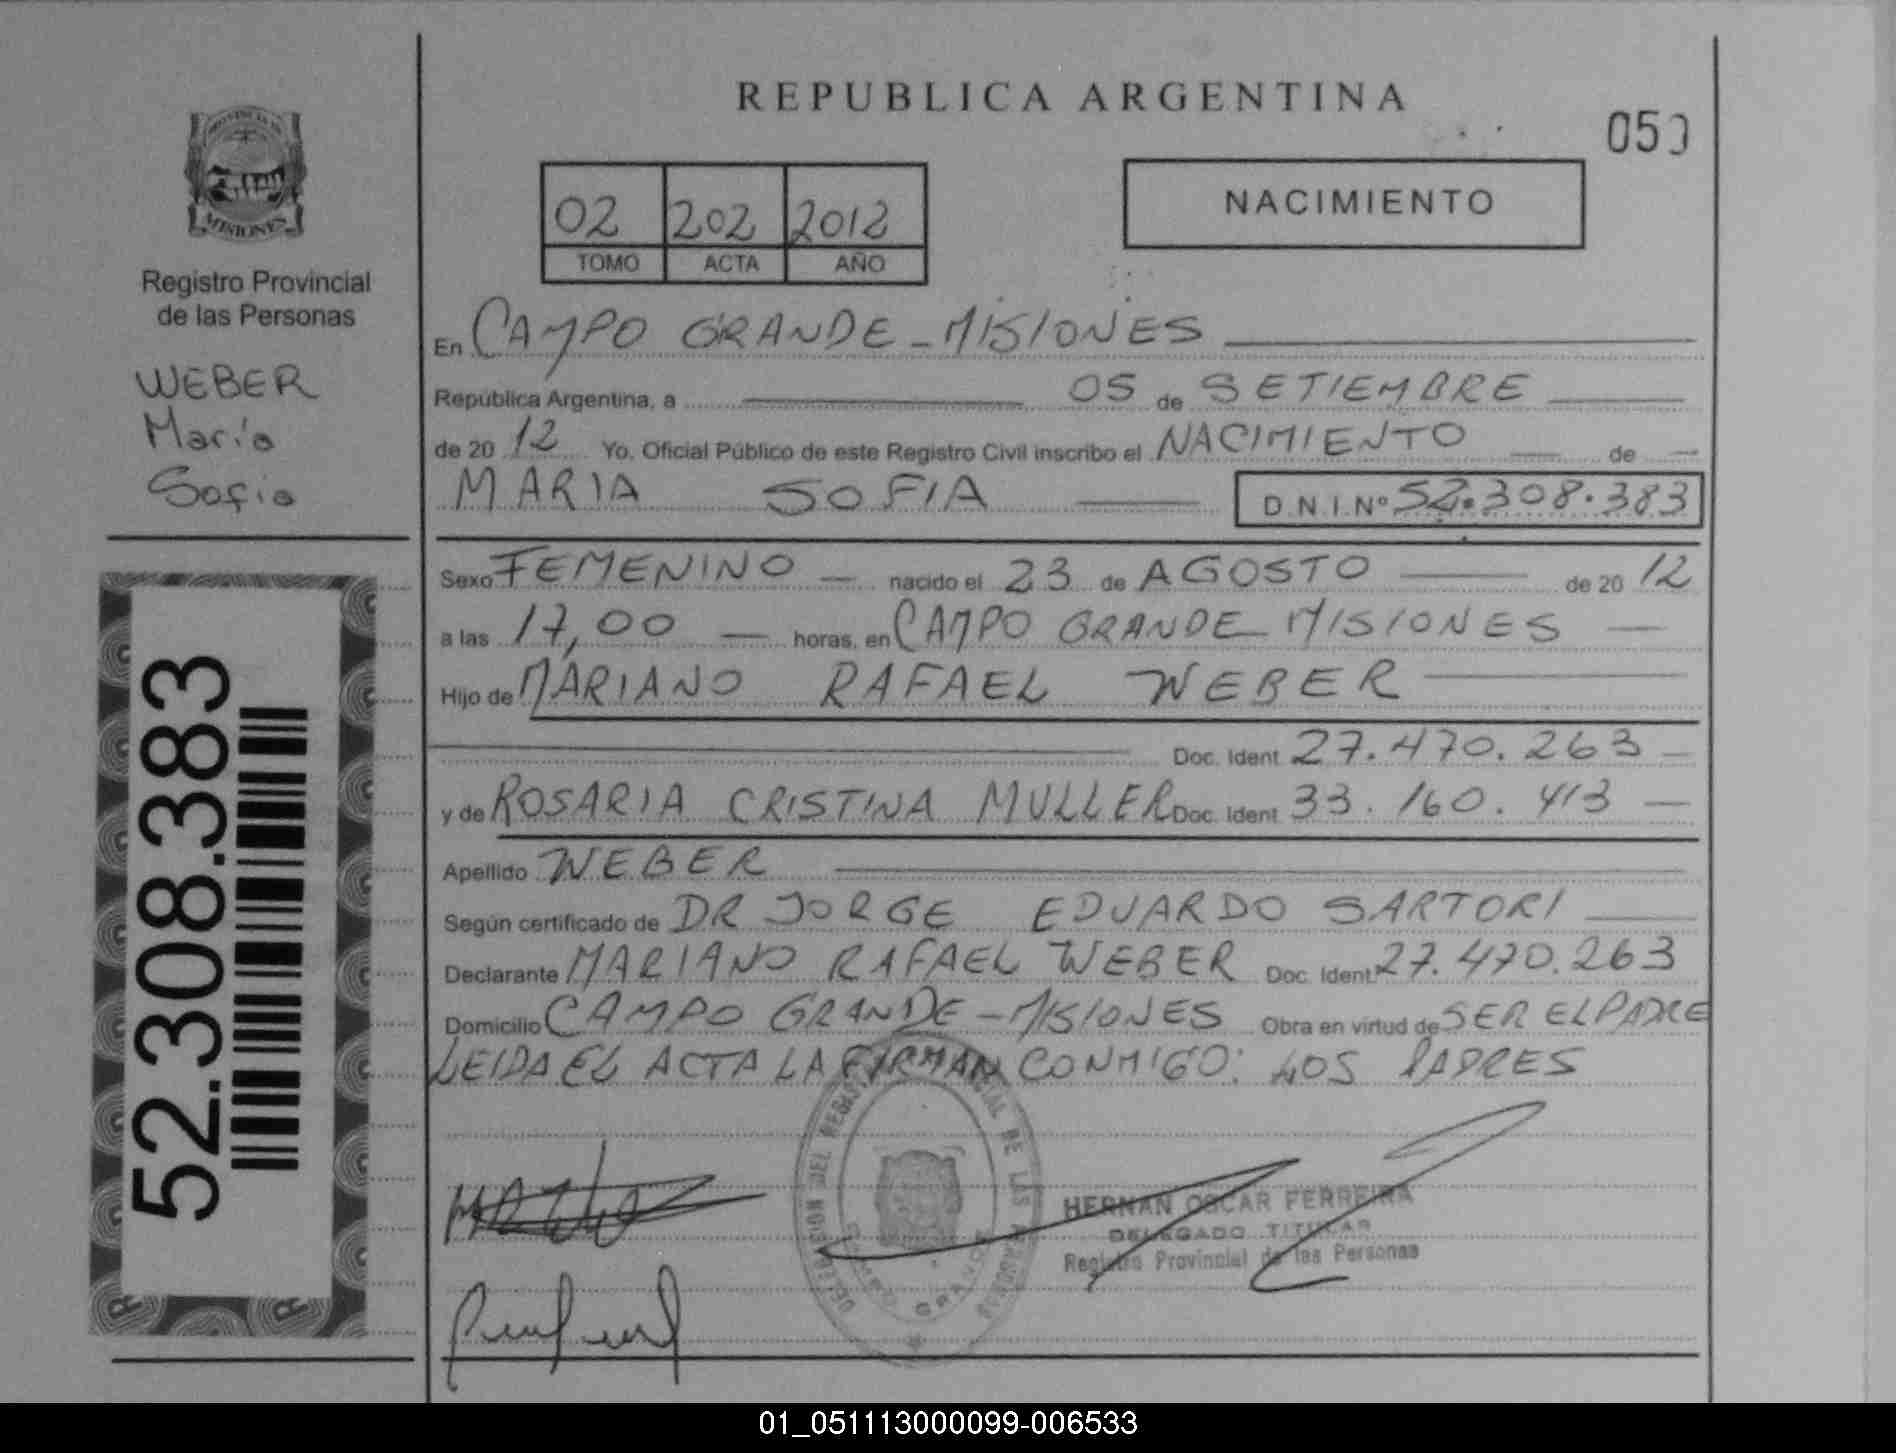 REPUBLICA ARGENTINA
050
PROVINCIA DE
MISIONES
Registro Provincial
de las Personas
WEBER
María
Sofia
52.308.383
02 202 2012
TOMO ACTA AÑO
NACIMIENTO
En CAMPO GRANDE - MISIONES
República Argentina, a 05 de SETIEMBRE
de 20 12 Yo, Oficial Público de este Registro Civil inscribo el NACIMIENTO de
MARIA SOFIA D.N.I. Nº 52.308.383
Sexo FEMENINO nacido el 23 de AGOSTO de 20 12
a las 17,00 horas, en CAMPO GRANDE MISIONES
Hijo de MARIANO RAFAEL WEBER
Doc. Ident 27.470.263
y de ROSARIA CRISTINA MULLER Doc. Ident 33.160.413
Apellido WEBER
Según certificado de DR JORGE EDUARDO SARTORI
Declarante MARIANO RAFAEL WEBER Doc. Ident 27.470.263
Domicilio CAMPO GRANDE - MISIONES Obra en virtud de SER EL PADRE
LEIDA EL ACTA LA FIRMAN CONMIGO: LOS PADRES
DELEGACION DEL REGISTRO DE LAS PERSONAS
CAMPO GRANDE
HERNAN OSCAR FERREIRA
DELEGADO TITULAR
Registro Provincial de las Personas
01_051113000099-006533